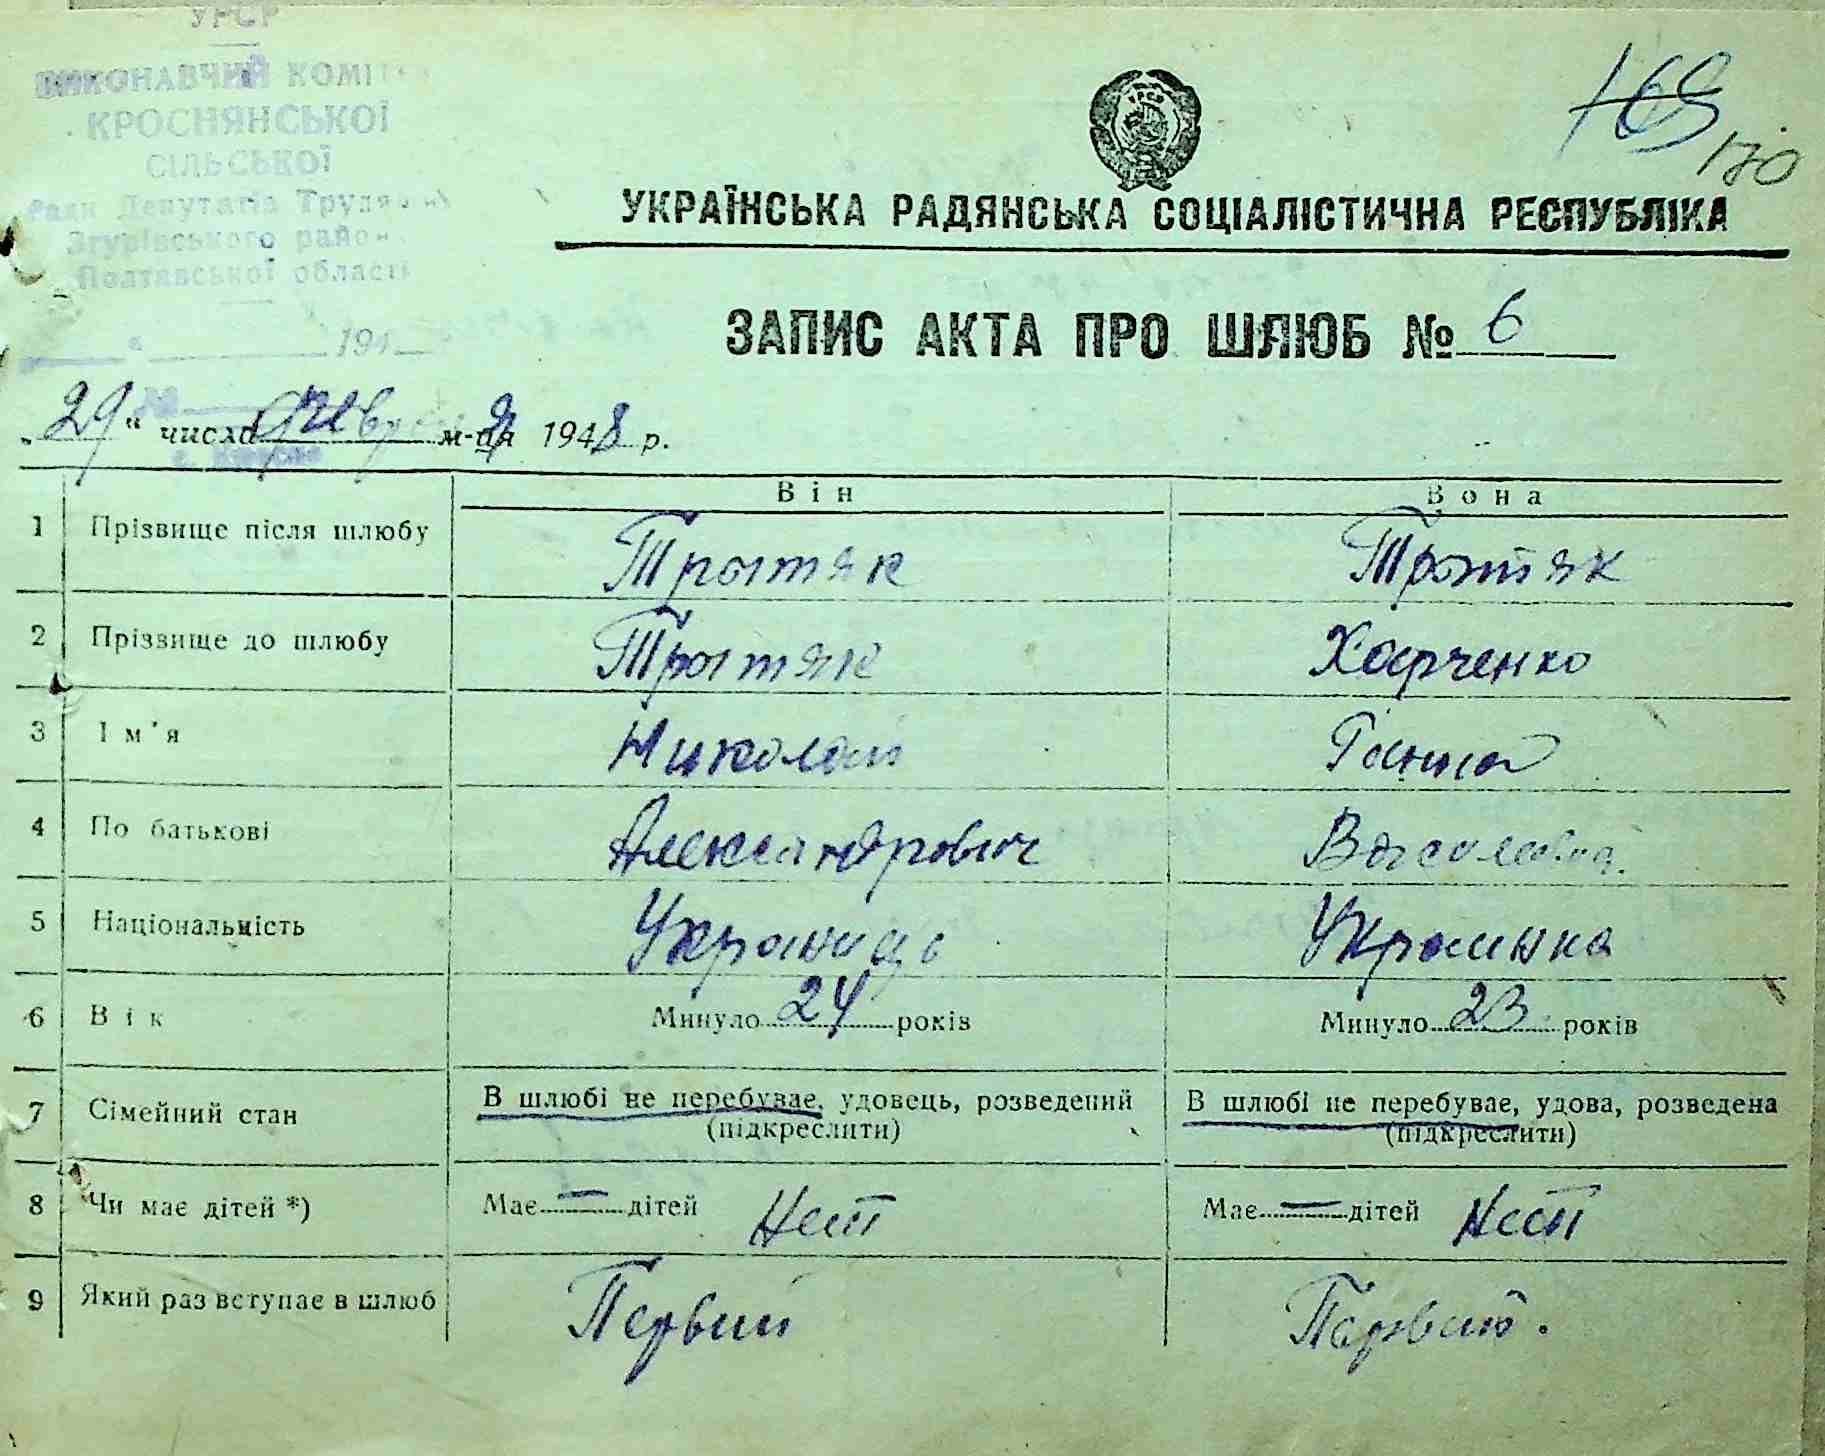 УРСР
ВИКОНАВЧИЙ КОМІТ
КРОСНЯНСЬКОЇ
СІЛЬСЬКОЇ
Ради Депутатів Трудящих
Згурівського район
Полтавської області
194
№
169
170
УКРАЇНСЬКА РАДЯНСЬКА СОЦІАЛІСТИЧНА РЕСПУБЛІКА
ЗАПИС АКТА ПРО ШЛЮБ № 6
„29“ числа февраля м-ця 1948 р.
Він Вона
1 Прізвище після шлюбу Тротяк Тротяк
2 Прізвище до шлюбу Тротяк Харченко
3 Ім'я Николай Ганна
4 По батькові Александрович Василевна
5 Національність Украинць Украинка
6 Вік Минуло 24 років Минуло 23 років
7 Сімейний стан В шлюбі не перебуває, удовець, розведений В шлюбі не перебуває, удова, розведена
(підкреслити) (підкреслити)
8 Чи має дітей *) Має — дітей Нет Має — дітей Нет
9 Який раз вступає в шлюб Первий Первий.